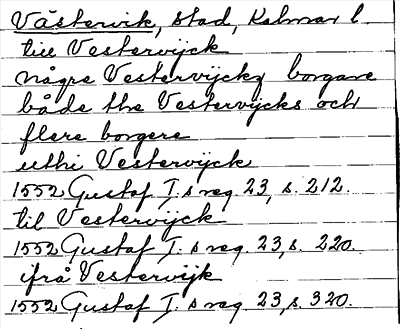 Västervik, stad, Kalmar l.
till Vestervijck
någre Vestervijckz borgare
både the Vestervijcks och
flere borgere
uthi Vestervijck
1552 Gustaf I:s reg. 23, s. 212.
til Vestervijck
1552 Gustaf I:s reg. 23, s. 220.
ifrå Vestervijk
1552 Gustaf I:s reg. 23, s. 320.